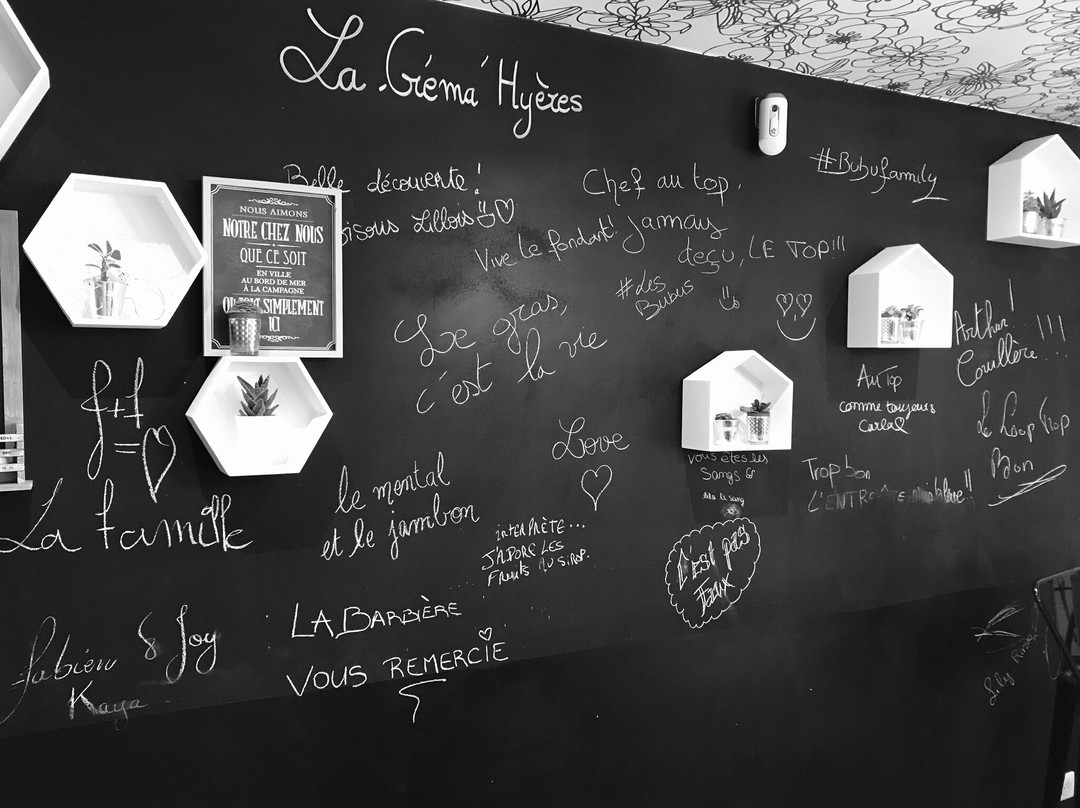 La Créma' Hyères
Belle découverte!
bisous Lillois
NOUS AIMONS
NOTRE CHEZ NOUS
QUE CE SOIT
EN VILLE
AU BORD DE MER
À LA CAMPAGNE
OU SIMPLEMENT
ICI
Chef au top.
Vive le fondant!
Jamais
deçu, LE TOP!!!
#BubuFamily
#des
Bubus
Le gras,
c'est la vie
f+f
=
La famille
le mental
et le jambon
Love
INTERPRÈTE...
J'ADORE LES
FRUITS AU SIROP.
vous êtes les
Sangs
C'est pas
Faux
Au Top
comme toujours
Carla
Arthur! !!!
Trop bon
L'ENTR
le Loup Trop
Bon
fabien & Joy
Kaya
LA BARBIÈRE
VOUS REMERCIE